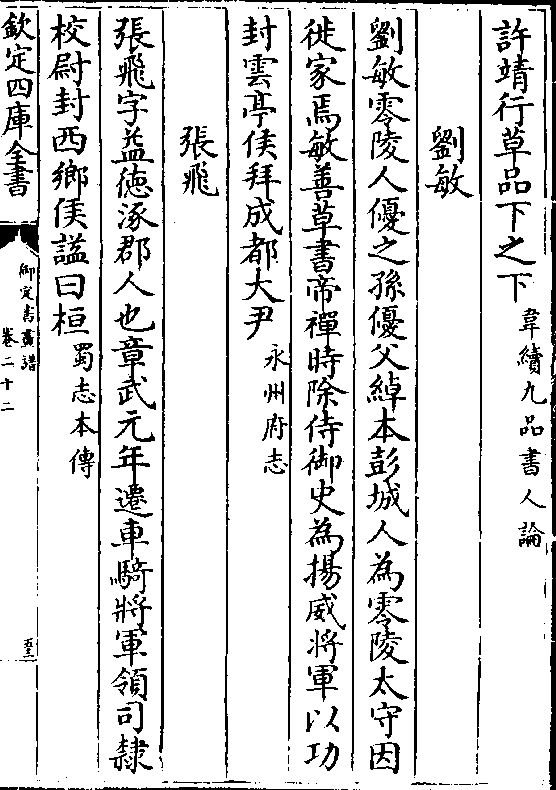 許靖行草品下之下 韋續九品書人論
劉敏
劉敏零陵人優之孫優父綽本彭城人為零陵太守因
徙家焉敏善草書帝禪時除侍御史為揚威將軍以功
封雲亭侯拜成都大尹 永州府志
張飛
張飛字益德涿郡人也章武元年遷車騎將軍領司隸
校尉封西鄉侯諡曰桓 蜀志本傳
欽定四庫全書
御定書畫譜
卷二十二